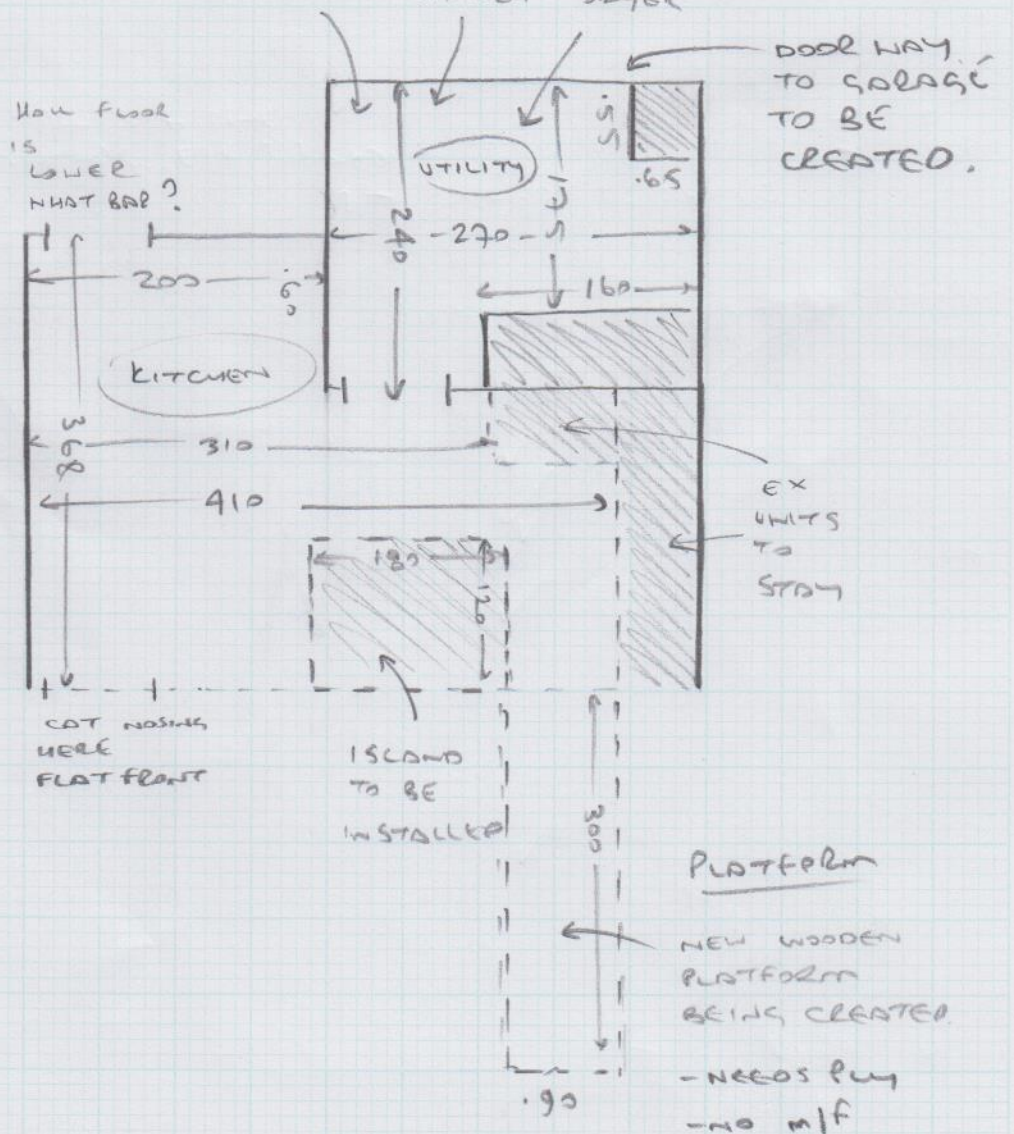 DRYER
DOOR WAY
TO GARAGE
TO BE
CREATED.
HALL FLOOR
IS
LOWER
WHAT BAR?
UTILITY
.55
.65
175
240
270
200
.60
160
KITCHEN
368
310
410
EX
UNITS
TO
STAY
180
120
CAT NOSING
HERE
FLAT FRONT
ISLAND
TO BE
INSTALLED
300
PLATFORM
NEW WOODEN
PLATFORM
BEING CREATED
- NEEDS PLY
- NO M/F
.90